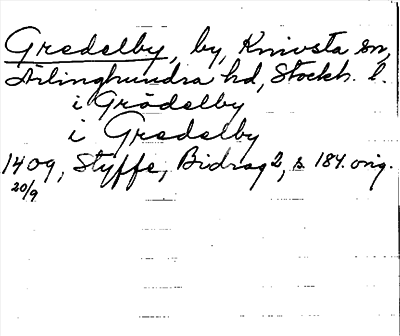 Gredelby, by, Knivsta sn,
Ärlinghundra hd, Stockh. l.
i Grädelby
i Gredelby
1409, Styffe, Bidrag 2, s 184. orig.
20/9